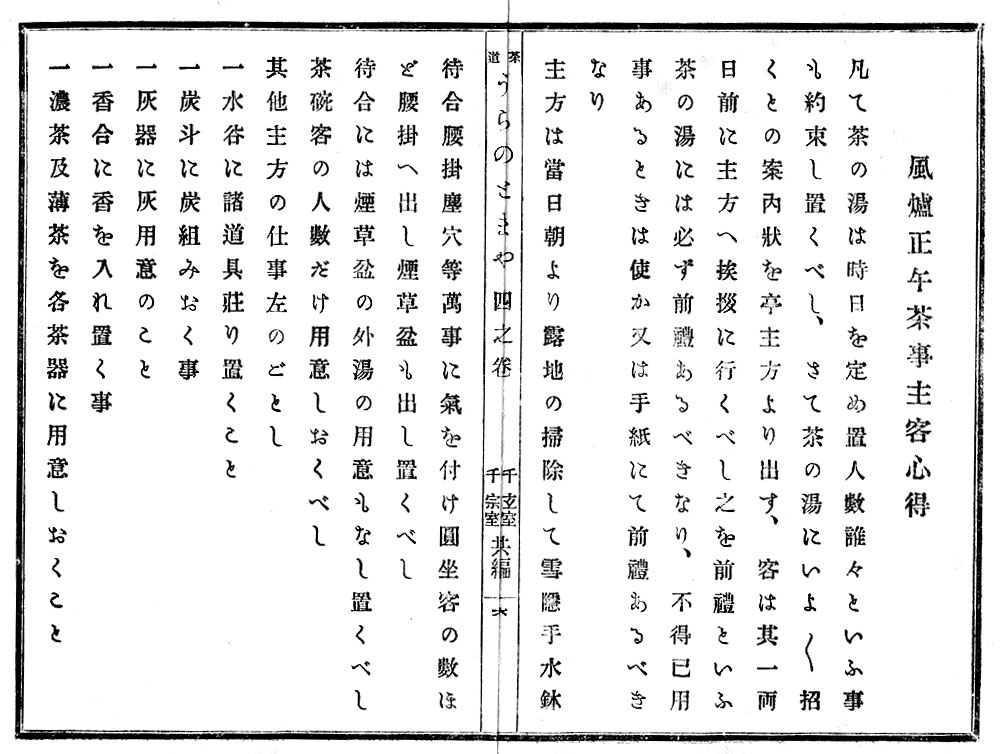 風爐正午茶事主客心得
凡て茶の湯は時日を定め置人數誰々といふ事
も約束し置くべし、さて茶の湯にいよ〱招
くとの案內狀を亭主方より出す、客は其一両
日前に主方へ挨拶に行くべし之を前禮といふ
茶の湯には必ず前禮あるべきなり、不得已用
事あるときは使か又は手紙にて前禮あるべき
なり
主方は當日朝より露地の掃除して雪隱手水鉢
茶道
うらのとまや 四之卷
千玄室
千宗室
共編
六
待合腰掛塵穴等萬事に氣を付け圓坐客の數ほ
ど腰掛へ出し煙草盆も出し置くべし
待合には煙草盆の外湯の用意もなし置くべし
茶碗客の人數だけ用意しおくべし
其他主方の仕事左のごとし
一水谷に諸道具莊り置くこと
一炭斗に炭組みおく事
一灰器に灰用意のこと
一香合に香を入れ置く事
一濃茶及薄茶を各茶器に用意しおくこと